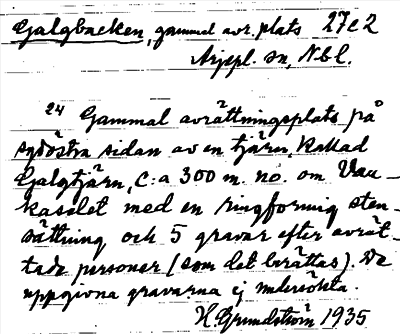 Galgbacken, gammal avr. plats 27e2
Arjepl. sn, Nbl.
24 Gammal avrättningsplats på
sydöstra sidan av en tjärn, kallad
Galgtjärn, c:a 300 m. no. om Vau-
kaselet med en ringformig sten-
sättning och 5 gravar efter avrät-
tade personer (som det berättas). De
uppgivna gravarna ej undersökta.
H. Grundström 1935